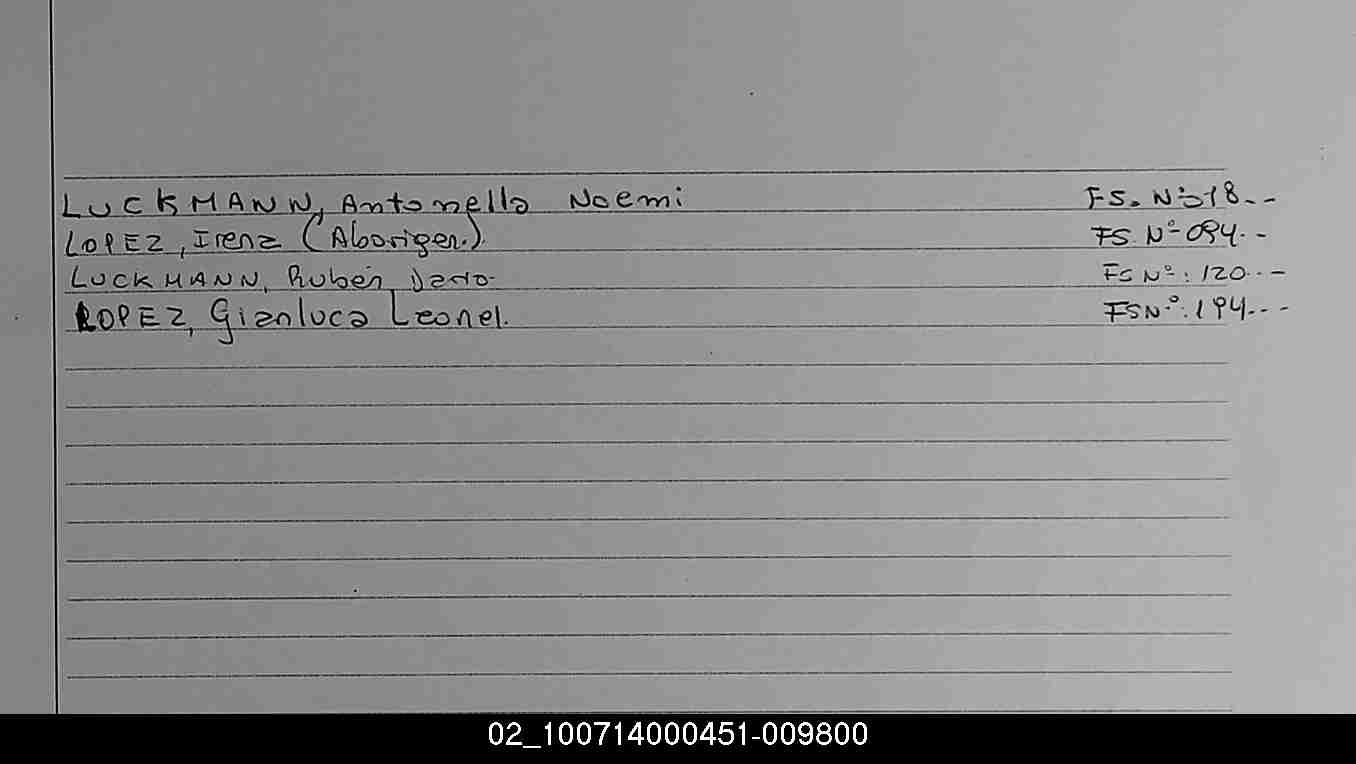 LUCKMANN, Antonella Noemi FS. Nº 18...
LOPEZ, Irena (Aborigen.) FS. Nº 094...
LUCKMANN, Rubén Dario- FS Nº: 120...
LOPEZ, Gianluca Leonel. FS Nº: 194...
02_100714000451-009800